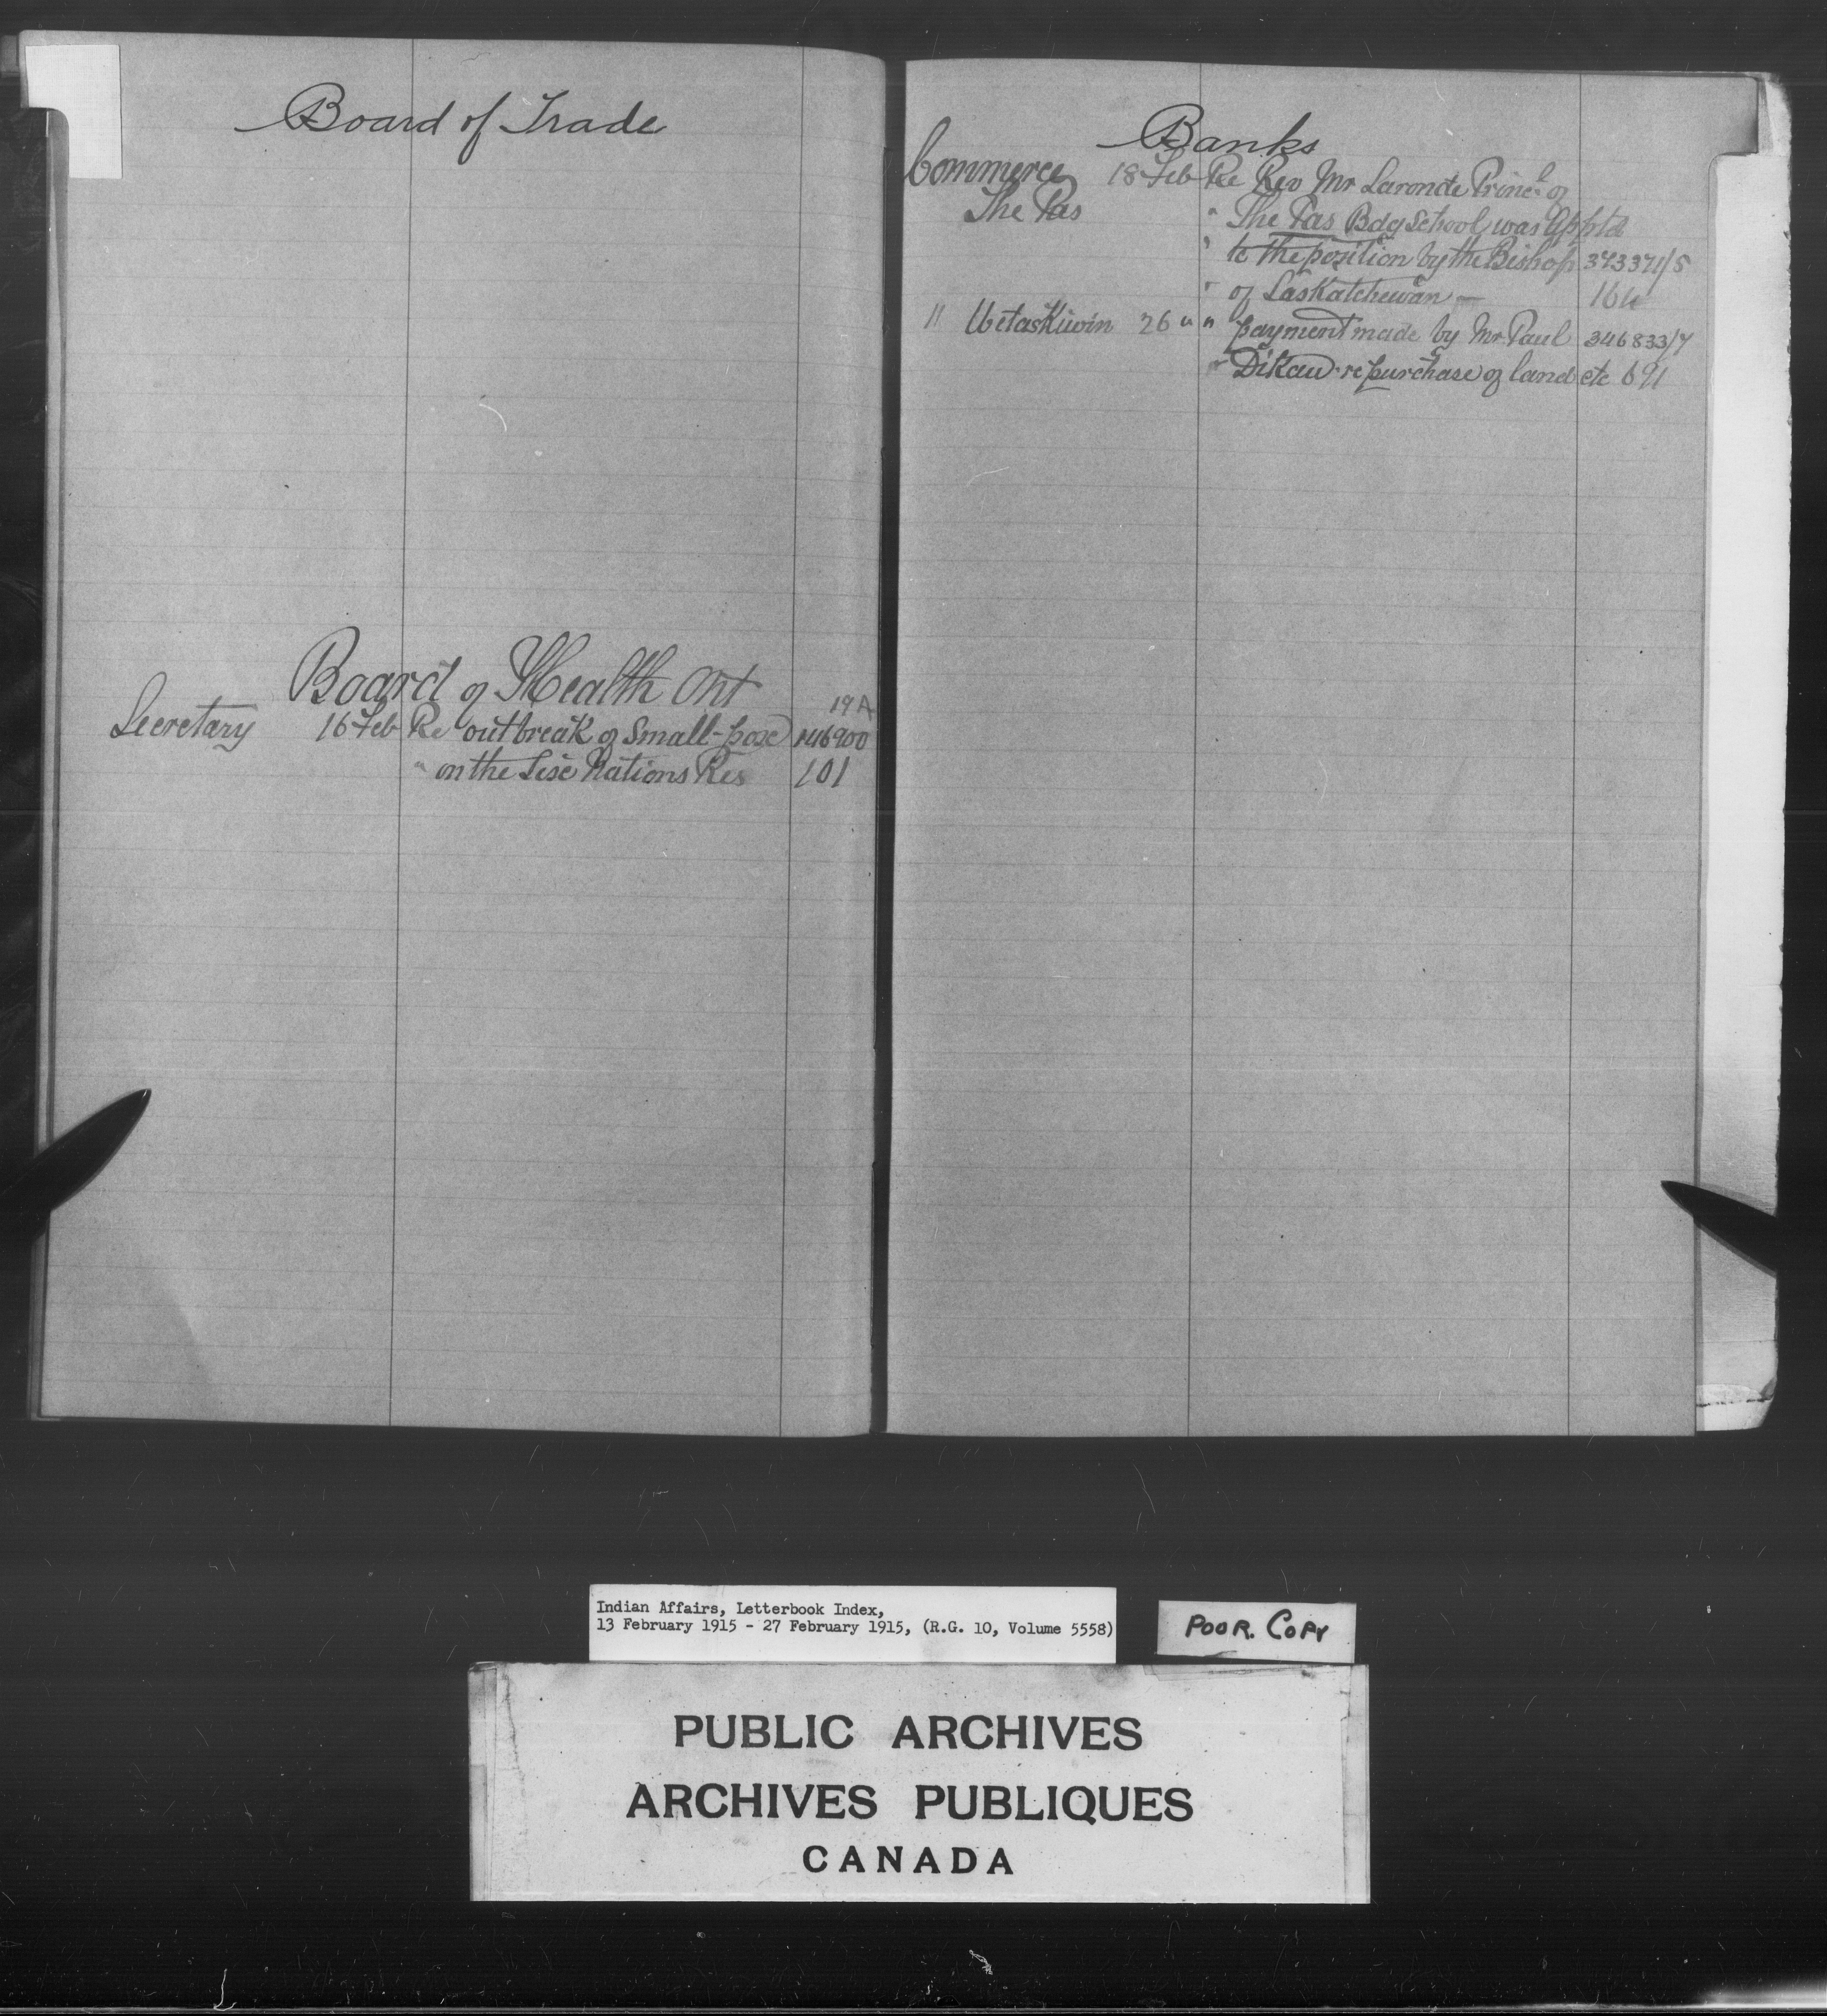 Board of Trade
Board of Health Ont
19A
Secretary 16 Feb Re outbreak of Small-pox 146900
" on the Six Nations Res 101
Banks
Commerce 18 Feb Re Rev Mr Laronde Princl of
The Pas " The Pas Bdg School was Apptd
" to the position by the Bishop 373371/5
" of Saskatchewan — 164
" Wetaskiwin 26 " " payment made by Mr. Paul 346833/7
" Dikau re purchase of land etc 691
Indian Affairs, Letterbook Index,
13 February 1915 - 27 February 1915, (R.G. 10, Volume 5558)
POOR. COPY
PUBLIC ARCHIVES
ARCHIVES PUBLIQUES
CANADA